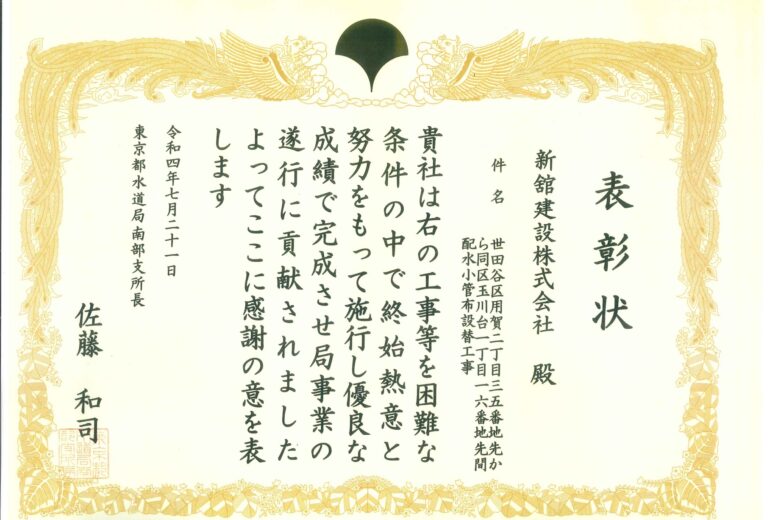 表彰状
新舘建設株式会社 殿
件名 世田谷区用賀二丁目三五番地先か
ら同区玉川台一丁目一六番地先間
配水小管布設替工事
貴社は右の工事等を困難な
条件の中で終始熱意と
努力をもって施行し優良な
成績で完成させ局事業の
遂行に貢献されました
よってここに感謝の意を表
します
令和四年七月二十一日
東京都水道局南部支所長
佐藤 和司